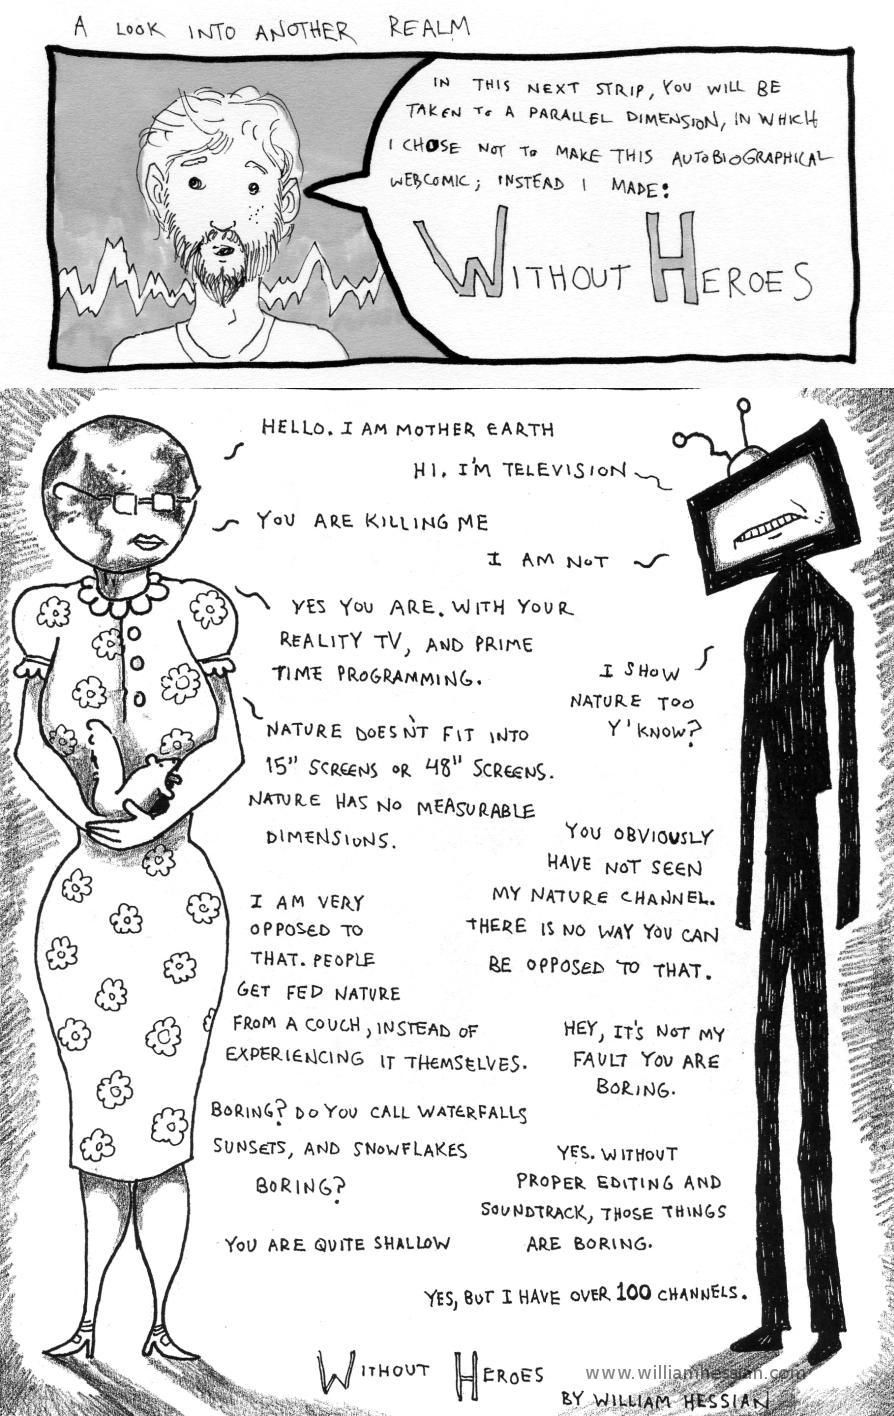 A LOOK INTO ANOTHER REALM
IN THIS NEXT STRIP, YOU WILL BE
TAKEN TO A PARALLEL DIMENSION, IN WHICH
I CHOSE NOT TO MAKE THIS AUTOBIOGRAPHICAL
WEBCOMIC; INSTEAD I MADE:
WITHOUT HEROES
HELLO. I AM MOTHER EARTH
HI. I'M TELEVISION
YOU ARE KILLING ME
I AM NOT
YES YOU ARE. WITH YOUR
REALITY TV, AND PRIME
TIME PROGRAMMING.
I SHOW
NATURE TOO
Y'KNOW?
NATURE DOESN'T FIT INTO
15" SCREENS OR 48" SCREENS.
NATURE HAS NO MEASURABLE
DIMENSIONS.
YOU OBVIOUSLY
HAVE NOT SEEN
MY NATURE CHANNEL.
THERE IS NO WAY YOU CAN
BE OPPOSED TO THAT.
I AM VERY
OPPOSED TO
THAT. PEOPLE
GET FED NATURE
FROM A COUCH, INSTEAD OF
EXPERIENCING IT THEMSELVES.
HEY, IT'S NOT MY
FAULT YOU ARE
BORING.
BORING? DO YOU CALL WATERFALLS
SUNSETS, AND SNOWFLAKES
BORING?
YES. WITHOUT
PROPER EDITING AND
SOUNDTRACK, THOSE THINGS
ARE BORING.
YOU ARE QUITE SHALLOW
YES, BUT I HAVE OVER 100 CHANNELS.
WITHOUT HEROES
www.williamhessian.com
BY WILLIAM HESSIAN